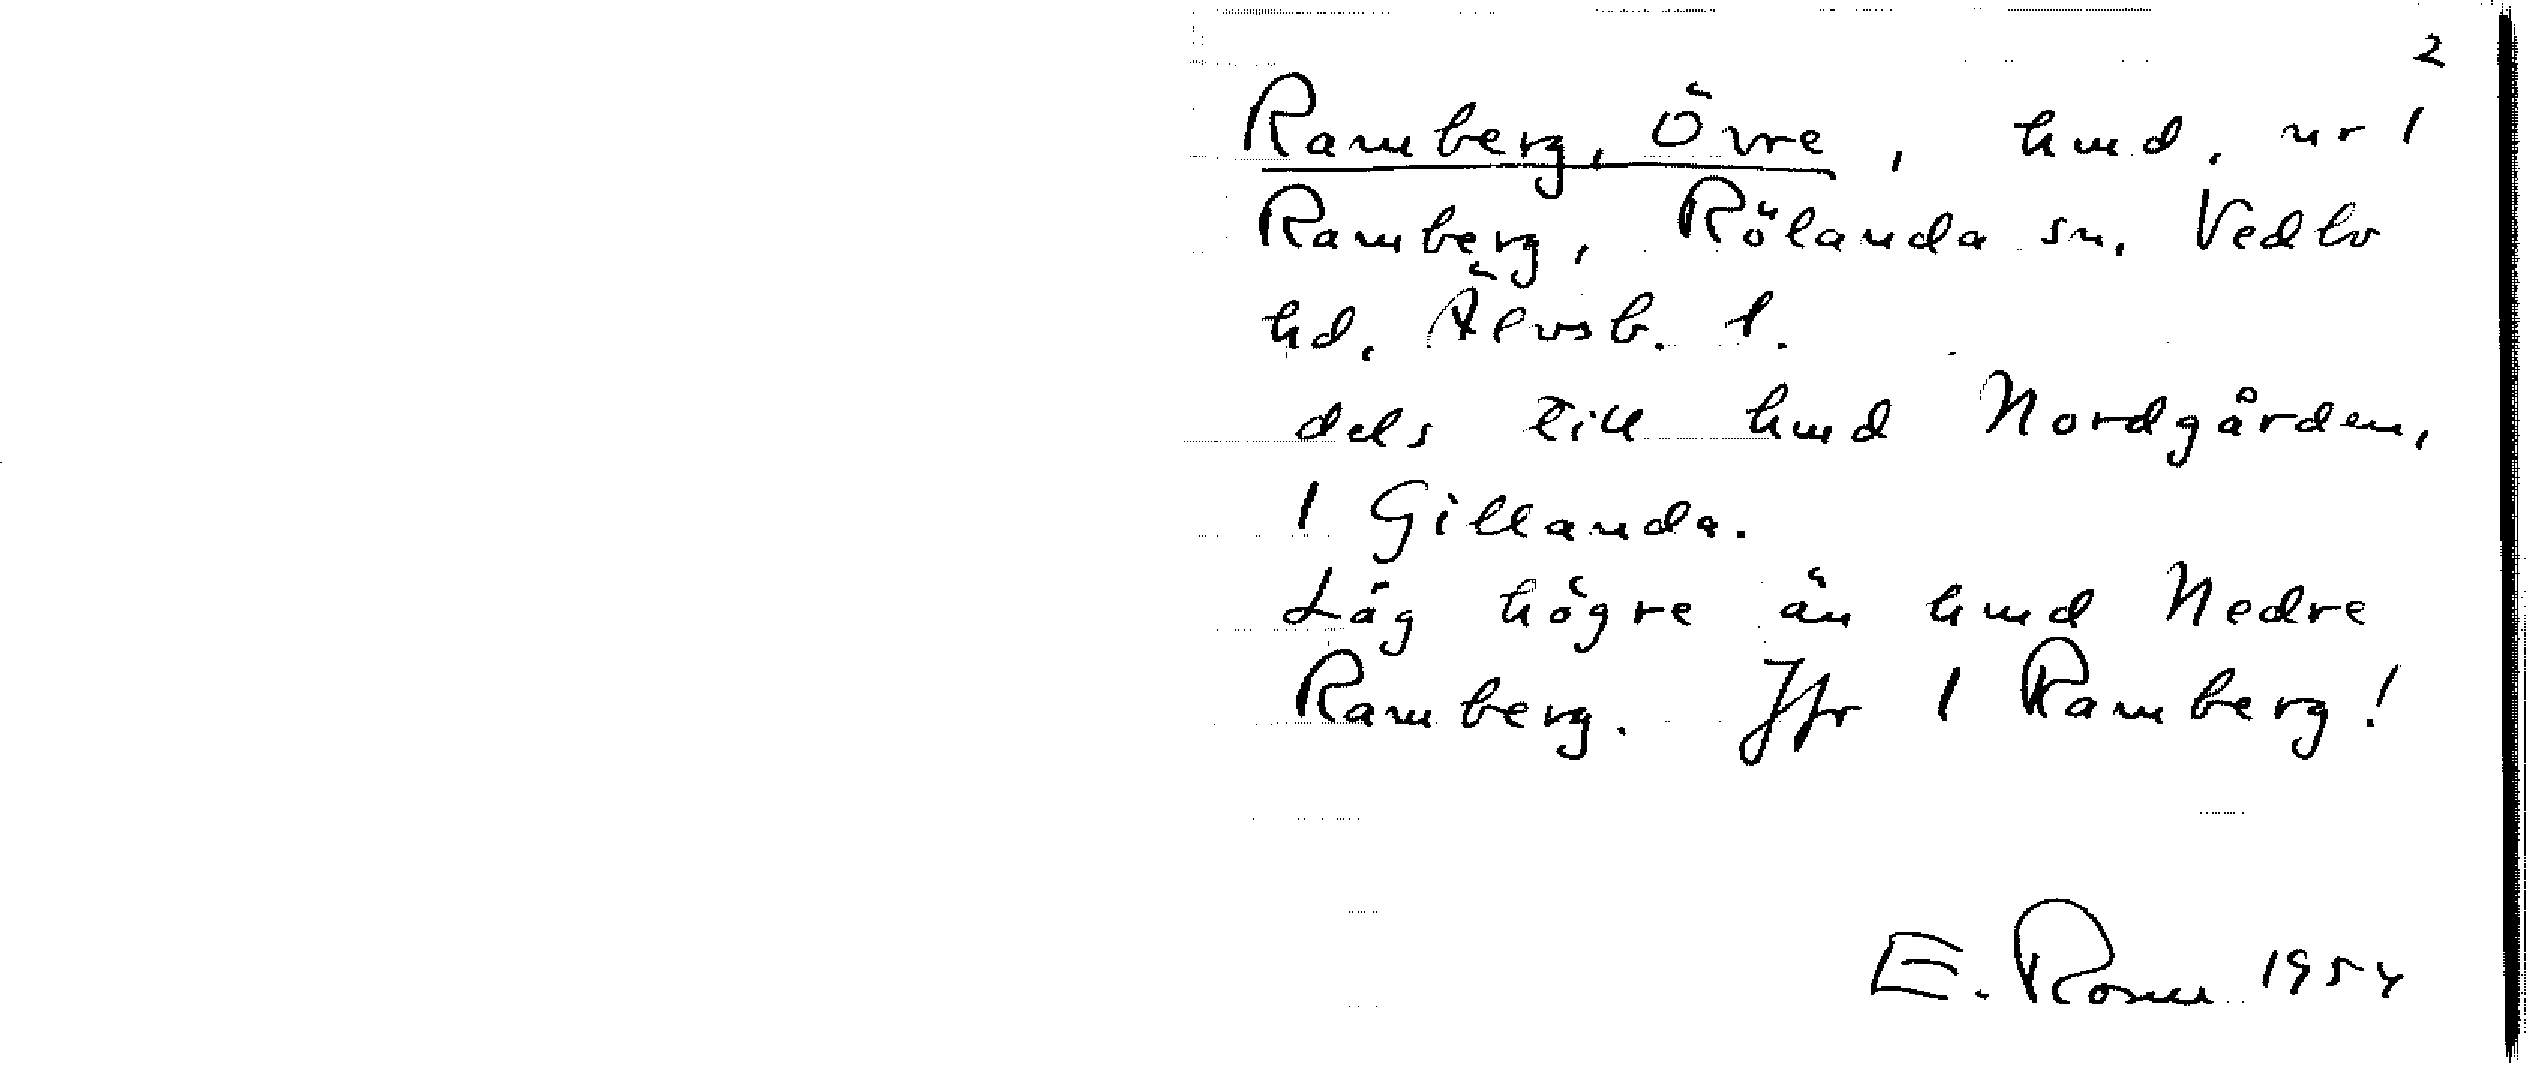 2
Ramberg, Övre, hmd. nr 1
Ramberg, Rölanda sn, Vedbo
hd, Älvsb. l.
dels till hmd Nordgården,
1 Gillanda.
Låg högre än hmd Nedre
Ramberg. Jfr 1 Ramberg!
E. Rosell 1954